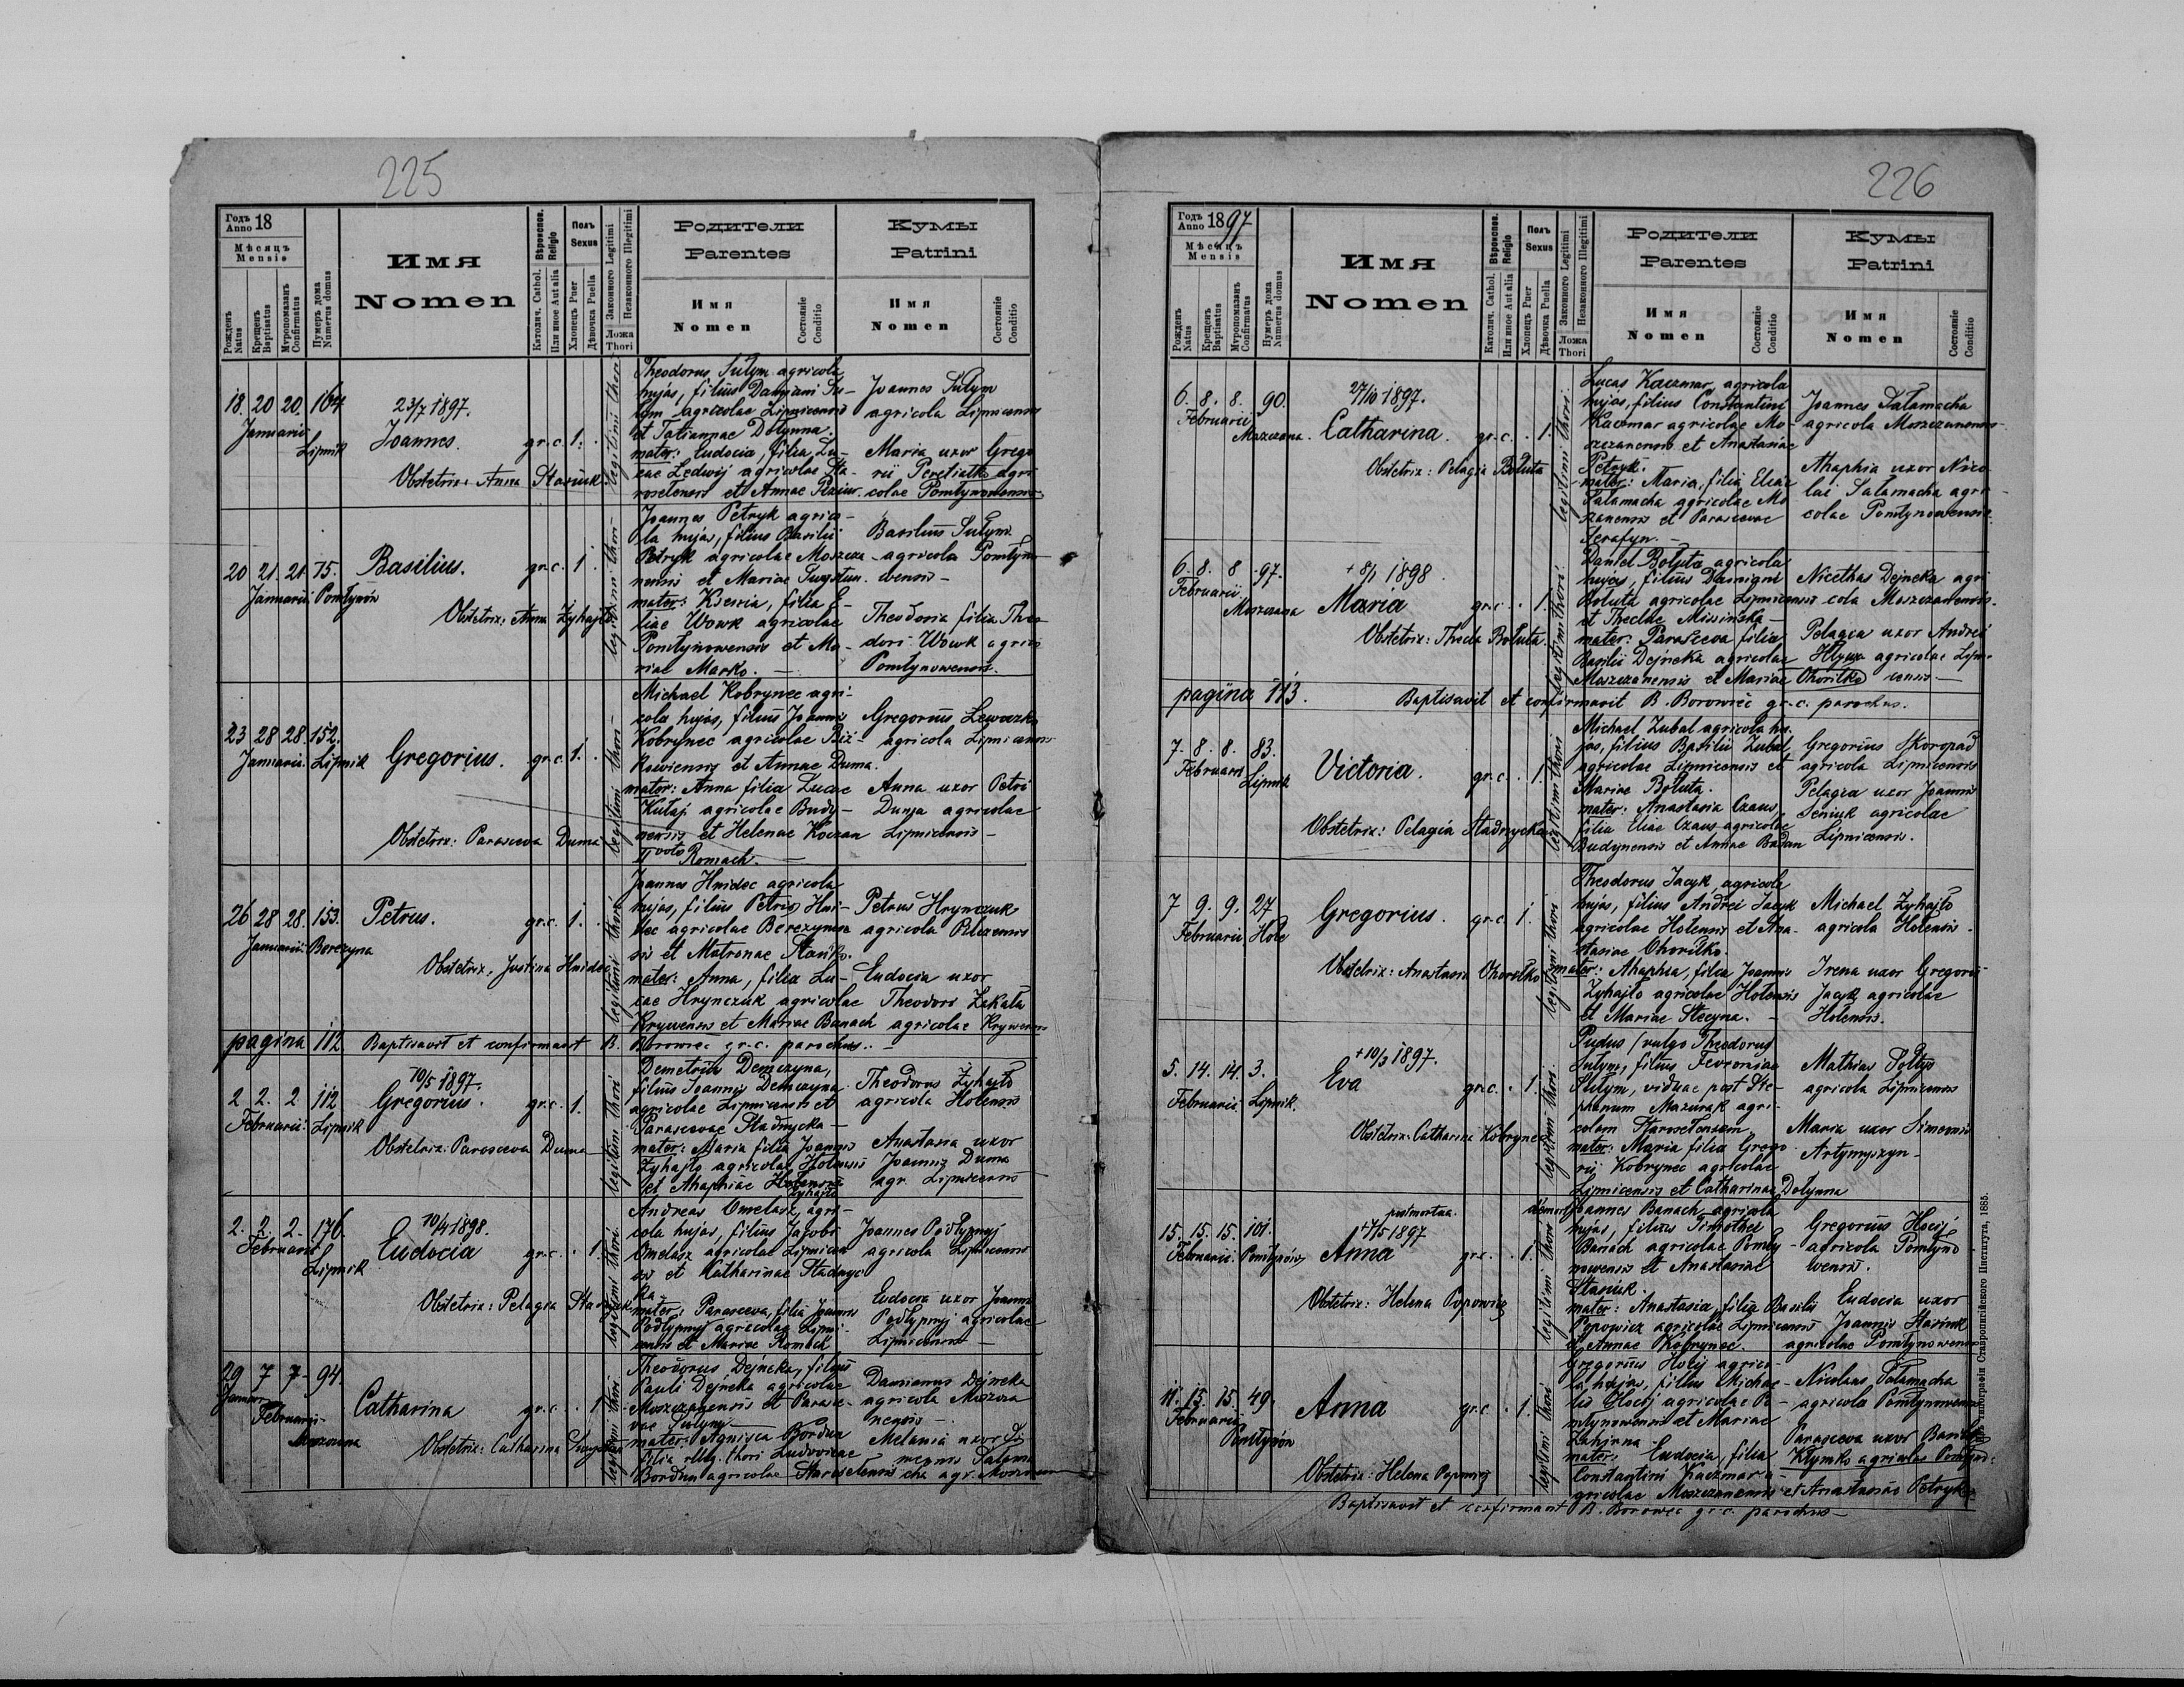 225
Годъ Anno 18
Мѣсяцъ
Mensis
Рожденъ Natus
Крещенъ Baptisatus
Муропомазанъ Confirmatus
Нумеръ дома Numerus domus
Имя
Nomen
Вѣроиспов. Religio
Католич. Cathol.
Или иное Aut alia
Полъ Sexus
Хлопецъ Puer
Дѣвочка Puella
Законного Legitimi
Незаконного Illegitimi
Ложа Thori
Родители
Parentes
Имя
Nomen
Состояніе Conditio
Кумы
Patrini
Имя
Nomen
Состояніе Conditio
18. 20 20. 164
Januarii Lipnik
23/7 1897.
Joannes. gr.c. 1.
Obstetrix: Anna Stasiuk
legitimi thori
Theodorus Sułym agricola
hujas, filius Damiani Su-
łym agricolae Lipnicensis
et Tatiannae Dołynna.
mater: Eudocia, filia Lu-
cae Ledwij agricolae Sta-
roselensis et Annae
Joannes Sułym
agricola Lipnicensis
Maria uxor Grego
rii agri
colae Pomłynowensis
20 21. 21. 75.
Januarii Pomłynów
Basilius. gr.c. 1
Obstetrix: Anna Zyhajło
legitimi thori
Joannes Petryk agrico-
la hujas, filius Basilii
Petryk agricolae Moszcza-
nensis et Mariae
mater: Ksenia, filia E-
liae Wowk agricolae
Pomłynowensis et Ma-
riae Marko. —
Basilius Sułym
agricola Pomłyno
wensis —
Theodoria filia Theo
dori Wowk agric
Pomłynowensis.
23 28 28. 152.
Januarii Lipnik
Gregorius. gr.c. 1.
Obstetrix: Parasceva Duma
legitimi thori
Michael Kobrynec agri-
cola hujas, filius Joannis
Kobrynec agricolae
et Annae Duma.
mater: Anna filia Lucae
Kułaj agricolae Budy-
nensis et Helenae Koczan
II voto Romach. —
Gregorius Lewoczko
agricola Lipnicensis
Anna uxor Petri
Dunja agricolae
Lipnicensis —
26 28 28. 153.
Januarii Berezyna
Petrus. gr.c. 1.
Obstetrix: Justina Hnidec
legitimi thori
Joannes Hnidec agricola
hujas, filius Petri Hni-
dec agricolae Berezynen
sis et Matronae Stańko.
mater: Anna, filia Lu-
cae Hrynczuk agricolae
Krywensis et Mariae Banach
Petrus Hrynczuk
agricola
Eudocia uxor
Theodori Zakała
agricolae Krywensis
pagina 112 Baptisavit et confirmavit B. Borowiec gr.c. parochus. —
2 2. 2 112
Februarii Lipnik
10/5 1897.
Gregorius. gr.c. 1.
Obstetrix: Parasceva Duma
legitimi thori
Demetrius Demczyna,
filius Joannis Demczyna
agricolae Lipnicensis et
Parascevae Stadnycka —
mater: Maria filia Joannis
Zyhajło agricolae Holensis
et Ahaphiae
Zyhajło
Theodorus Zyhajło
agricola Holensis
Anastasia uxor
Joannis Duma
agr. Lipnicensis
2. 2. 2. 176.
Februarii Lipnik
10/4 1898.
Eudocia gr.c. 1.
Obstetrix: Pelagia
legitimi thori
Andreas Omelasz, agri-
cola hujas, filius Jacobi
Omelasz agricolae Lipnicen
sis et Catharinae Stadnyc
ka —
mater: Parasceva, filia Joannis
Podłypnyj agricolae Lipni-
censis et Mariae Romach
Joannes Podłypnyj
agricola Lipnicensis
Eudocia uxor Joannis
Podłypnyj agricolae
Lipnicensis —
29 7 7 94.
Januarii Februarii
Moszczana
Catharina gr.c. 1.
Obstetrix: Catharina
legitimi thori
Theodorus Dejneka, filius
Pauli Dejneka agricolae
Moszczanensis et Parasce-
vae Sułym —
mater: Agnisca Bordun
filia illeg. thori Ludovicae
Bordun agricolae Staroselensis
Damianus Dejneka
agricola Moszcza
nensis —
Melania uxor Si
meonis Sałama
cha agr. Moszczan
226
Годъ Anno 1897
Мѣсяцъ
Mensis
Рожденъ Natus
Крещенъ Baptisatus
Муропомазанъ Confirmatus
Нумеръ дома Numerus domus
Имя
Nomen
Вѣроиспов. Religio
Католич. Cathol.
Или иное Aut alia
Полъ Sexus
Хлопецъ Puer
Дѣвочка Puella
Законного Legitimi
Незаконного Illegitimi
Ложа Thori
Родители
Parentes
Имя
Nomen
Состояніе Conditio
Кумы
Patrini
Имя
Nomen
Состояніе Conditio
6. 8. 8. 90.
Februarii Moszczana.
27/10 1897.
Catharina. gr.c. 1.
Obstetrix: Pelagia Bołuta
legitimi thori
Lucas Kaczmar agricola
hujas, filius Constantini
Kaczmar agricolae Mo-
szczanensis et Anastasiae
Petryk.
mater: Maria, filia Eliae
Sałamacha agricolae Mo
szczanensis et Parascevae
Serafyn. —
Joannes Sałamacha
agricola Moszczanensis
Ahaphia uxor Nico
lai Sałamacha agri-
colae Pomłynowensis
6. 8. 8 97.
Februarii Moszczana
+ 8/1 1898.
Maria gr.c. 1.
Obstetrix: Thecla Bołuta
legitimi thori
Daniel Bołuta agricola
hujas, filius Damiani
Bołuta agricolae Lipnicensis
et Theclae Misińska —
mater: Parasceva filia
Basilii Dejneka agricolae
Moszczanensis et Mariae Ohoriłko
Nicethas Dejneka agri
cola Moszczanensis.
Pelagia uxor Andreae
agricolae Lipni
censis —
pagina 113. Baptisavit et confirmavit B. Borowiec gr.c. parochus.
7. 8. 8. 83.
Februarii Lipnik
Victoria. gr.c. 1.
Obstetrix: Pelagia Stadnycka
legitimi thori
Michael Zubal agricola hu
jas, filius Basilii Zubal
agricolae Lipnicensis et
Mariae Bołuta.
mater: Anastasia Czaus,
filia Eliae Czaus agricolae
Budynensis et Annae Badan
Gregorius Skoropad
agricola Lipnicensis
Pelagia uxor Joannis
Seniuk agricolae
Lipnicensis.
7 9. 9. 27
Februarii Hołe
Gregorius. gr.c. 1.
Obstetrix: Anastasia Ohoriłko
legitimi thori
Theodorus Jacyk, agricola
hujas, filius Andrei Jacyk
agricolae Holensis et Ana-
stasiae Ohoriłko.
mater: Ahaphia, filia Joannis
Zyhajło agricolae Holensis
et Mariae Stecyna. —
Michael Zyhajło
agricola Holensis.
Irena uxor Gregorii
Jacyk agricolae
Holensis.
5. 14. 14. 3.
Februarii Lipnik.
+ 10/3 1897.
Eva gr.c. 1.
Obstetrix: Catharina Kobrynec
legitimi thori
(vulgo Theodorus
Sułym, filius Fevroniae
Sułym, viduae post Ste-
phanum Mazurak agri-
colam
mater: Maria filia Grego
rii Kobrynec agricolae
Lipnicensis et Catharinae Dołynna
Mathias Połtys
agricola Lipnicensis
Maria uxor Simeonis
Artymyszyn —
15. 15. 15. 101.
Februarii Pomłynów
Anna gr.c. 1.
Obstetrix: Helena Popowicz
legitimi thori
Joannes Banach agricola
hujas, filius Timothei
Banach agricolae Pomły-
nowensis et Anastasiae
Stasiuk.
mater: Anastasia, filia Basilii
Popowicz agricolae Lipnicensis
et Annae Kobrynec.
Gregorius Hocij
agricola Pomłyno
wensis.
Eudocia uxor
Joannis Stasiuk
agricolae Pomłynowensis
11. 15. 15. 49.
Februarii Pomłynów
Anna gr.c. 1.
Obstetrix: Helena Popowicz
legitimi thori
Gregorius Hocij agrico-
la hujas, filius Michae-
lis Hocij agricolae Po-
młynowensis et Mariae
mater: Eudocia, filia
Constantini Kaczmar a-
gricolae Moszczanensis et Anastasiae Petryk
Nicolaus Sałamacha
agricola Pomłynowensis
Parasceva uxor Basilii
Kłymko agricolae
Baptisavit et confirmavit B. Borowiec gr.c. parochus —
типографіи Ставропигійского Института, 1885.